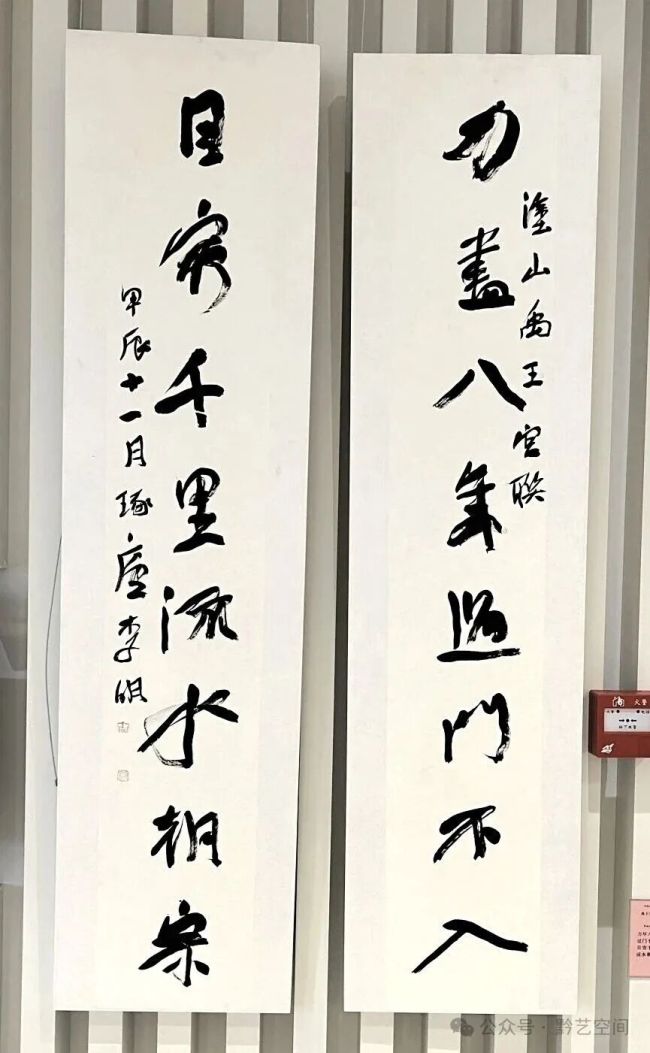 力盡八年過門不入
塗山禹王宮聯
目窮千里流水朝宗
甲辰十一月琢廬李明
公众号·黔艺空间